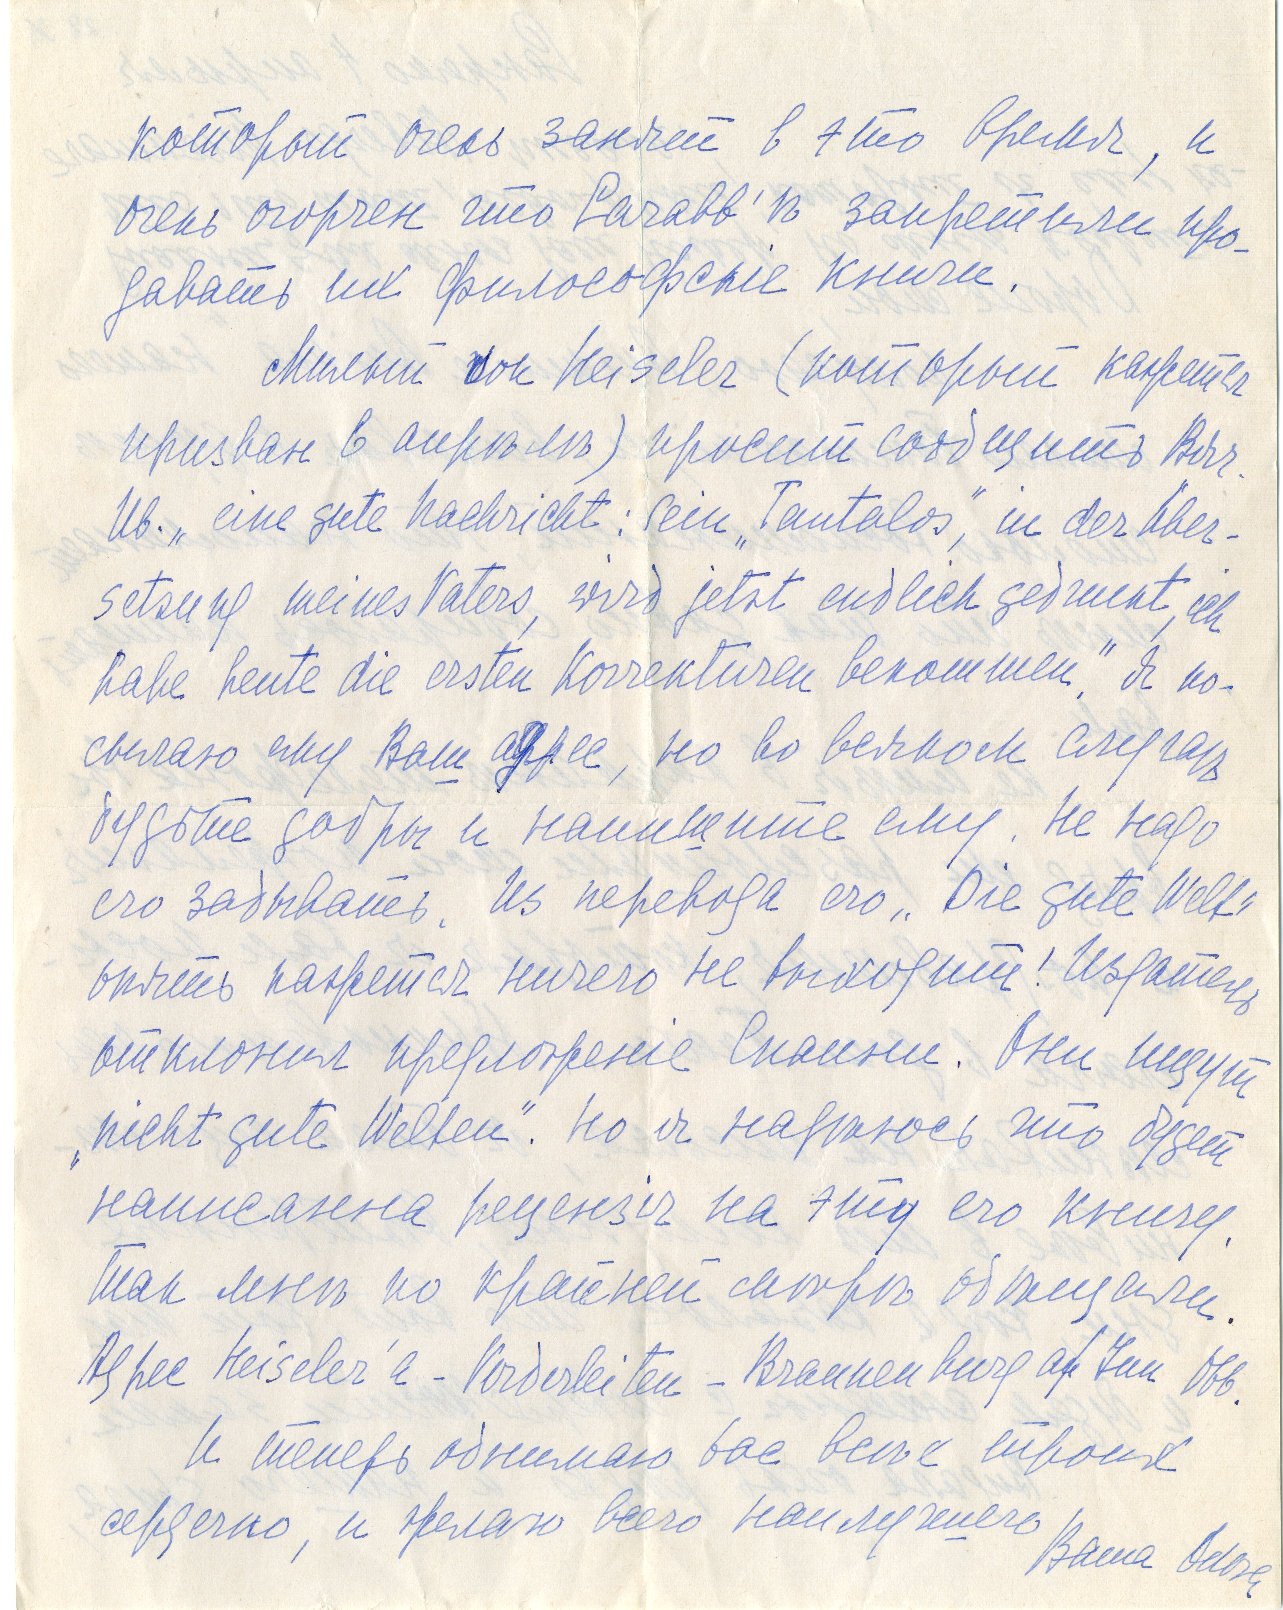 который очень занят в это время, и
очень огорчен что Carabb'ѣ запретили про-
давать их философскіе книги.
Милый von Heiseler (который кажется
призван в апрѣлѣ) просит сообщить Вяч.
Ив. „eine gute Nachricht: sein „Tantalos", in der Über-
setzung meines Vaters, wird jetzt endlich gedruckt, ich
habe heute die ersten Korrekturen bekommen". Я по-
сылаю ему Ваш адрес, но во всяком случаѣ
будьте добры и напишите ему. Не надо
его забывать. Из перевода его „Die gute Welt"
опять кажется ничего не выходит! Издатель
отклонил предложеніе Спаини. Они ищут
„nicht gute Welten". Но я надѣюсь что будет
написанна рецензія на эту его книгу.
Так мнѣ по крайней мѣрѣ обѣщали.
Адрес Heiseler'а - Vorderleiten - Brannenburg a/ Inn Obb.
И теперь обнимаю вас всѣх троих
сердечно, и желаю всего наилучшего
Ваша Ольга